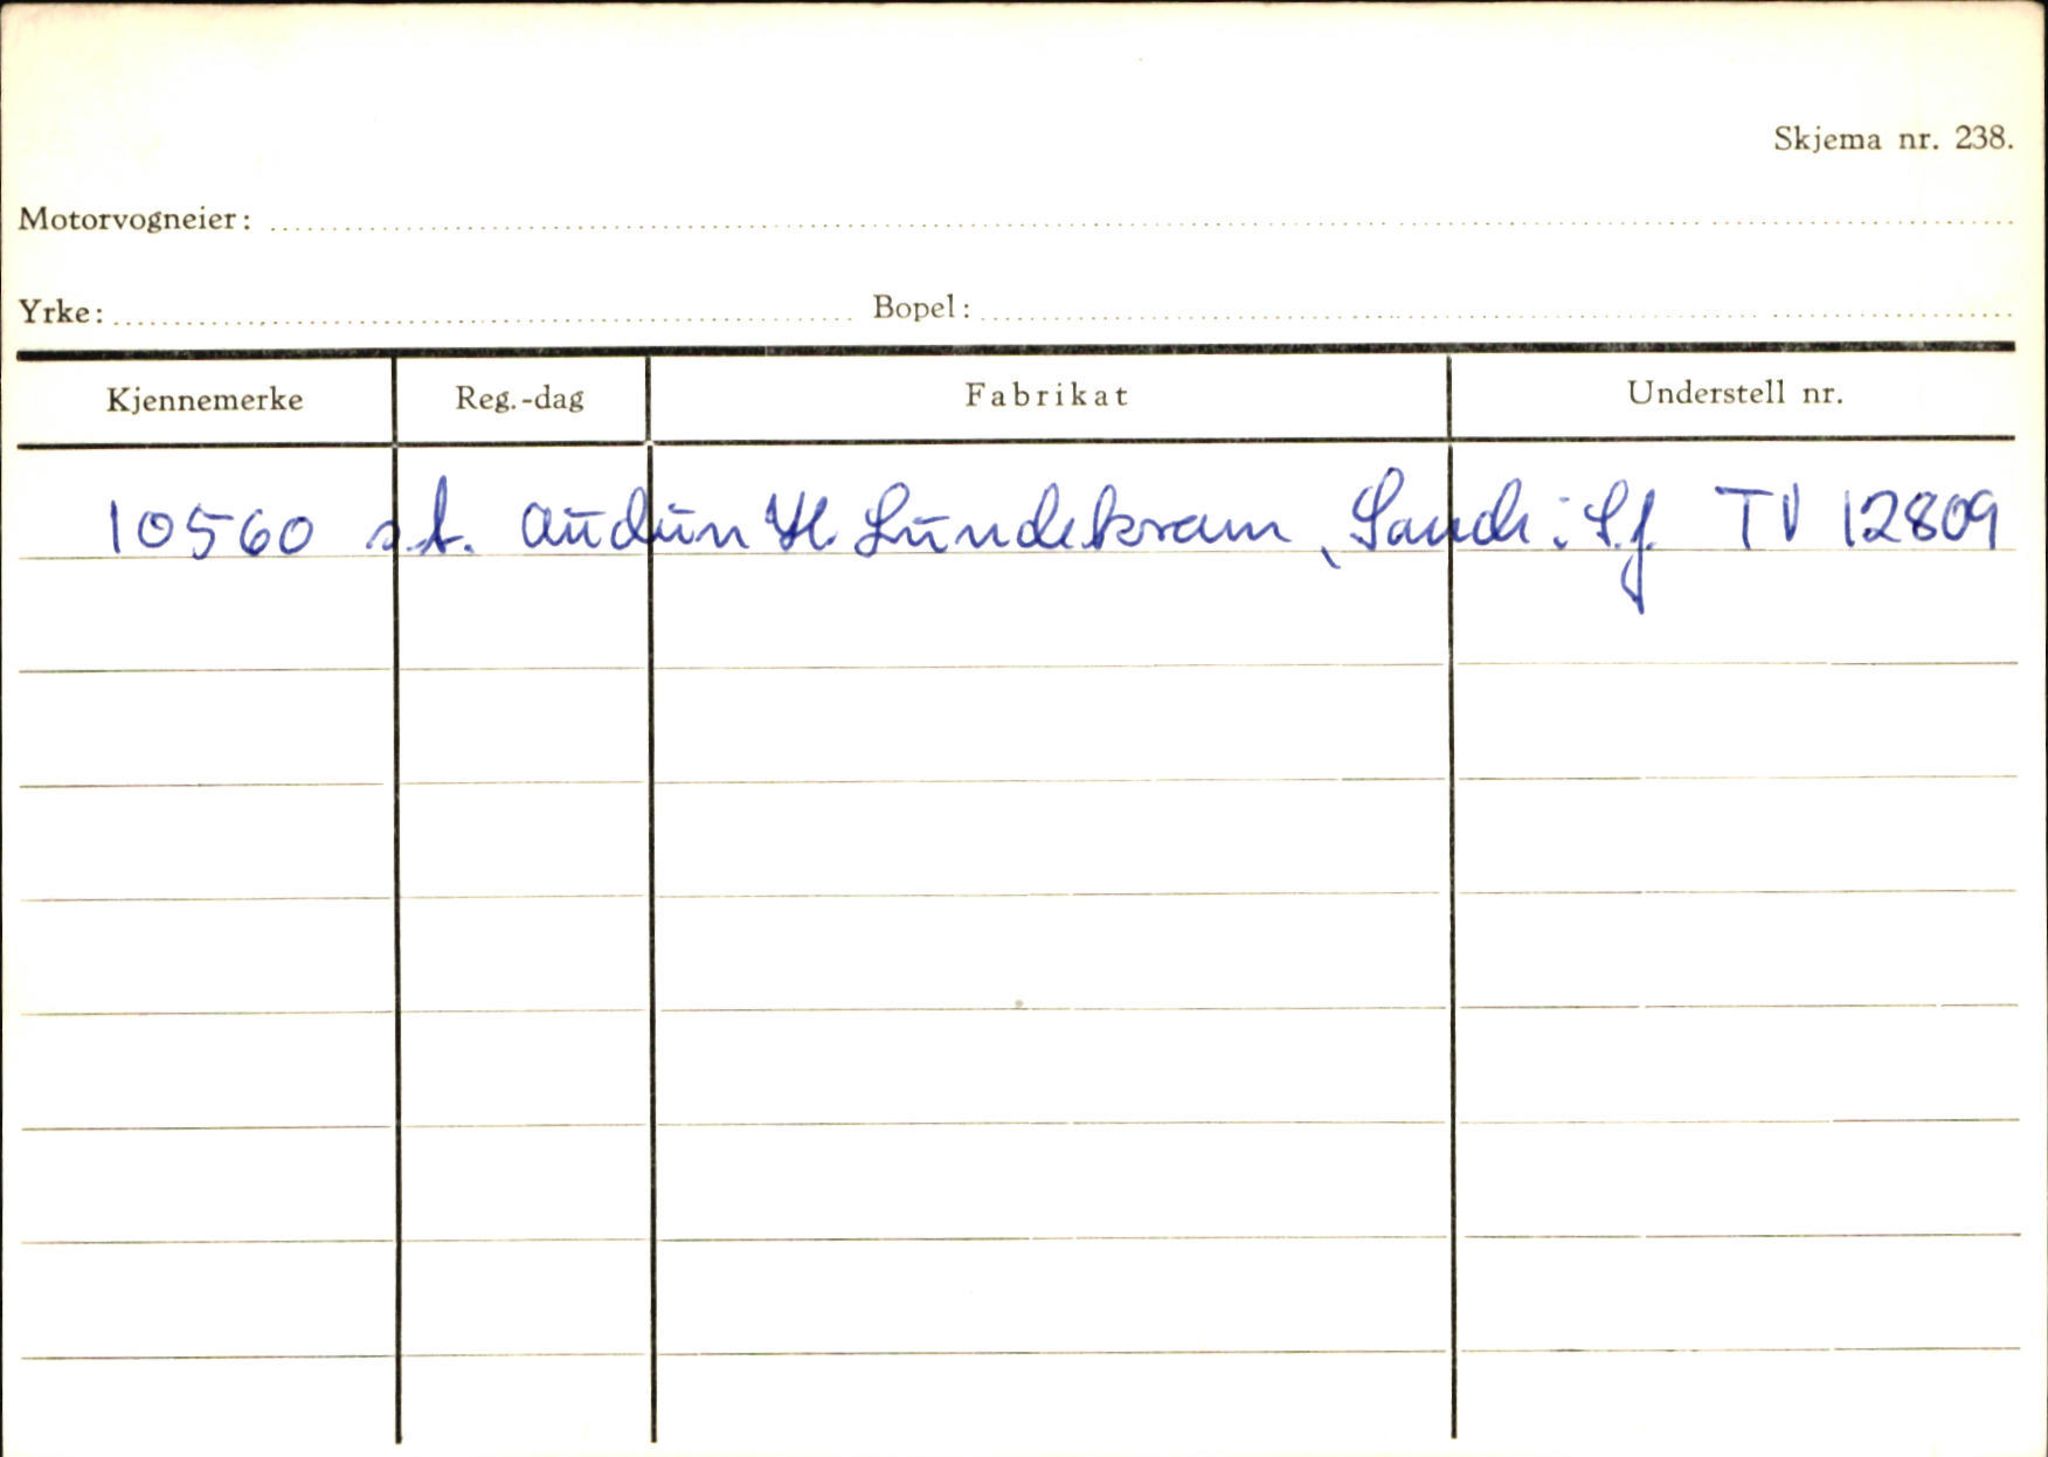 Skjema nr. 238.
Motorvogneier:
Yrke: Bopel:
Kjennemerke Reg.-dag Fabrikat Understell nr.
10560 s.t. Audun H. Lundekvam, Sande i S.f. TV 12809